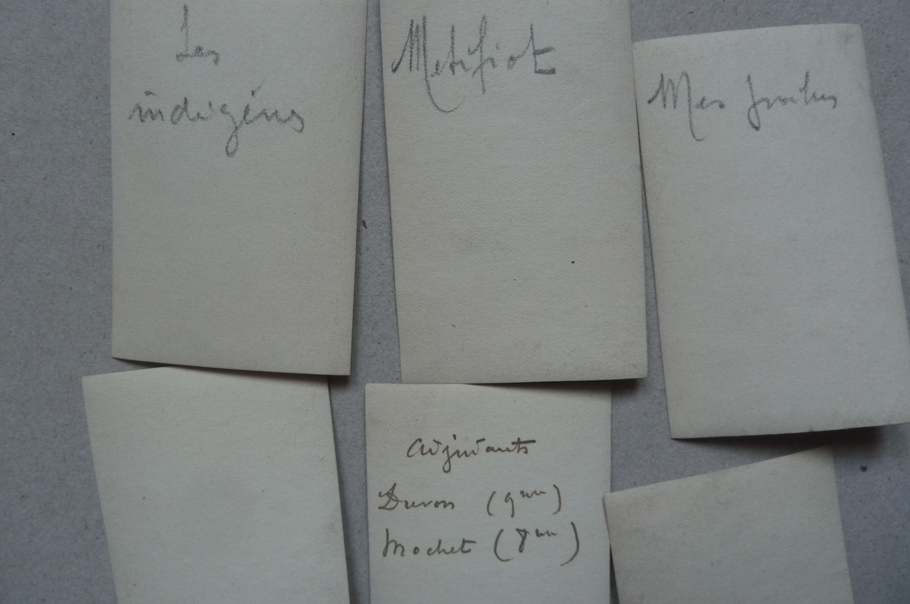 Les
indigènes
Metifiot
Mes
adjudants
Duron (9me)
Mochet (8me)